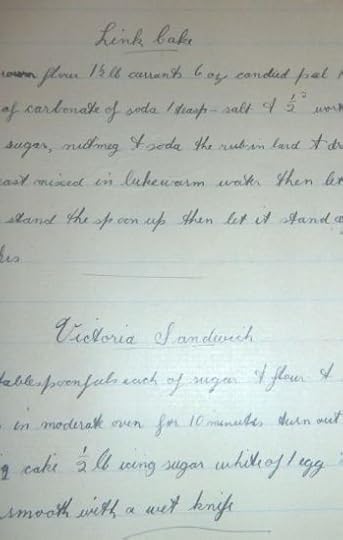 Link Cake
flour 1½ lb currants 6 oz candied peal
of carbonate of soda 1 teasp - salt &
sugar, nutmeg & soda the rub in lard &
mixed in lukewarm water then let
stand the spoon up then let it stand
Victoria Sandwich
tablespoonfuls each of sugar & flour &
in moderate oven for 10 minutes turn out
cake ½ lb icing sugar white of 1 egg
smooth with a wet knife